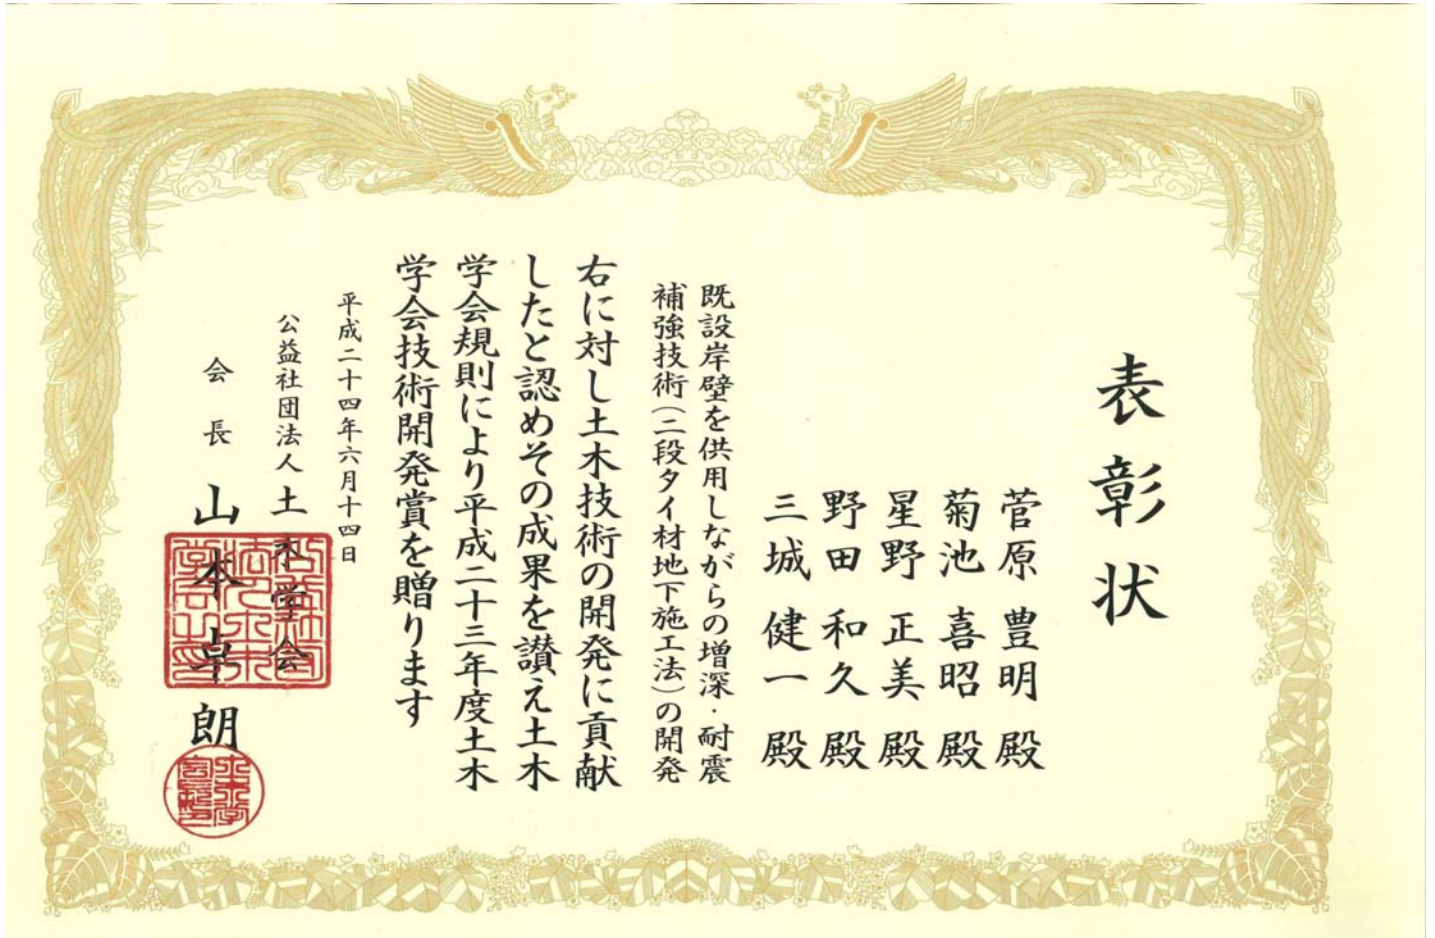 表彰状
菅原 豊明 殿
菊池 喜昭 殿
星野 正美 殿
野田 和久 殿
三城 健一 殿
既設岸壁を供用しながらの増深・耐震
補強技術(二段タイ材地下施工法)の開発
右に対し土木技術の開発に貢献
したと認めその成果を讃え土木
学会規則により平成二十三年度土木
学会技術開発賞を贈ります
平成二十四年六月十四日
公益社団法人 土木学会
会長 山本卓朗